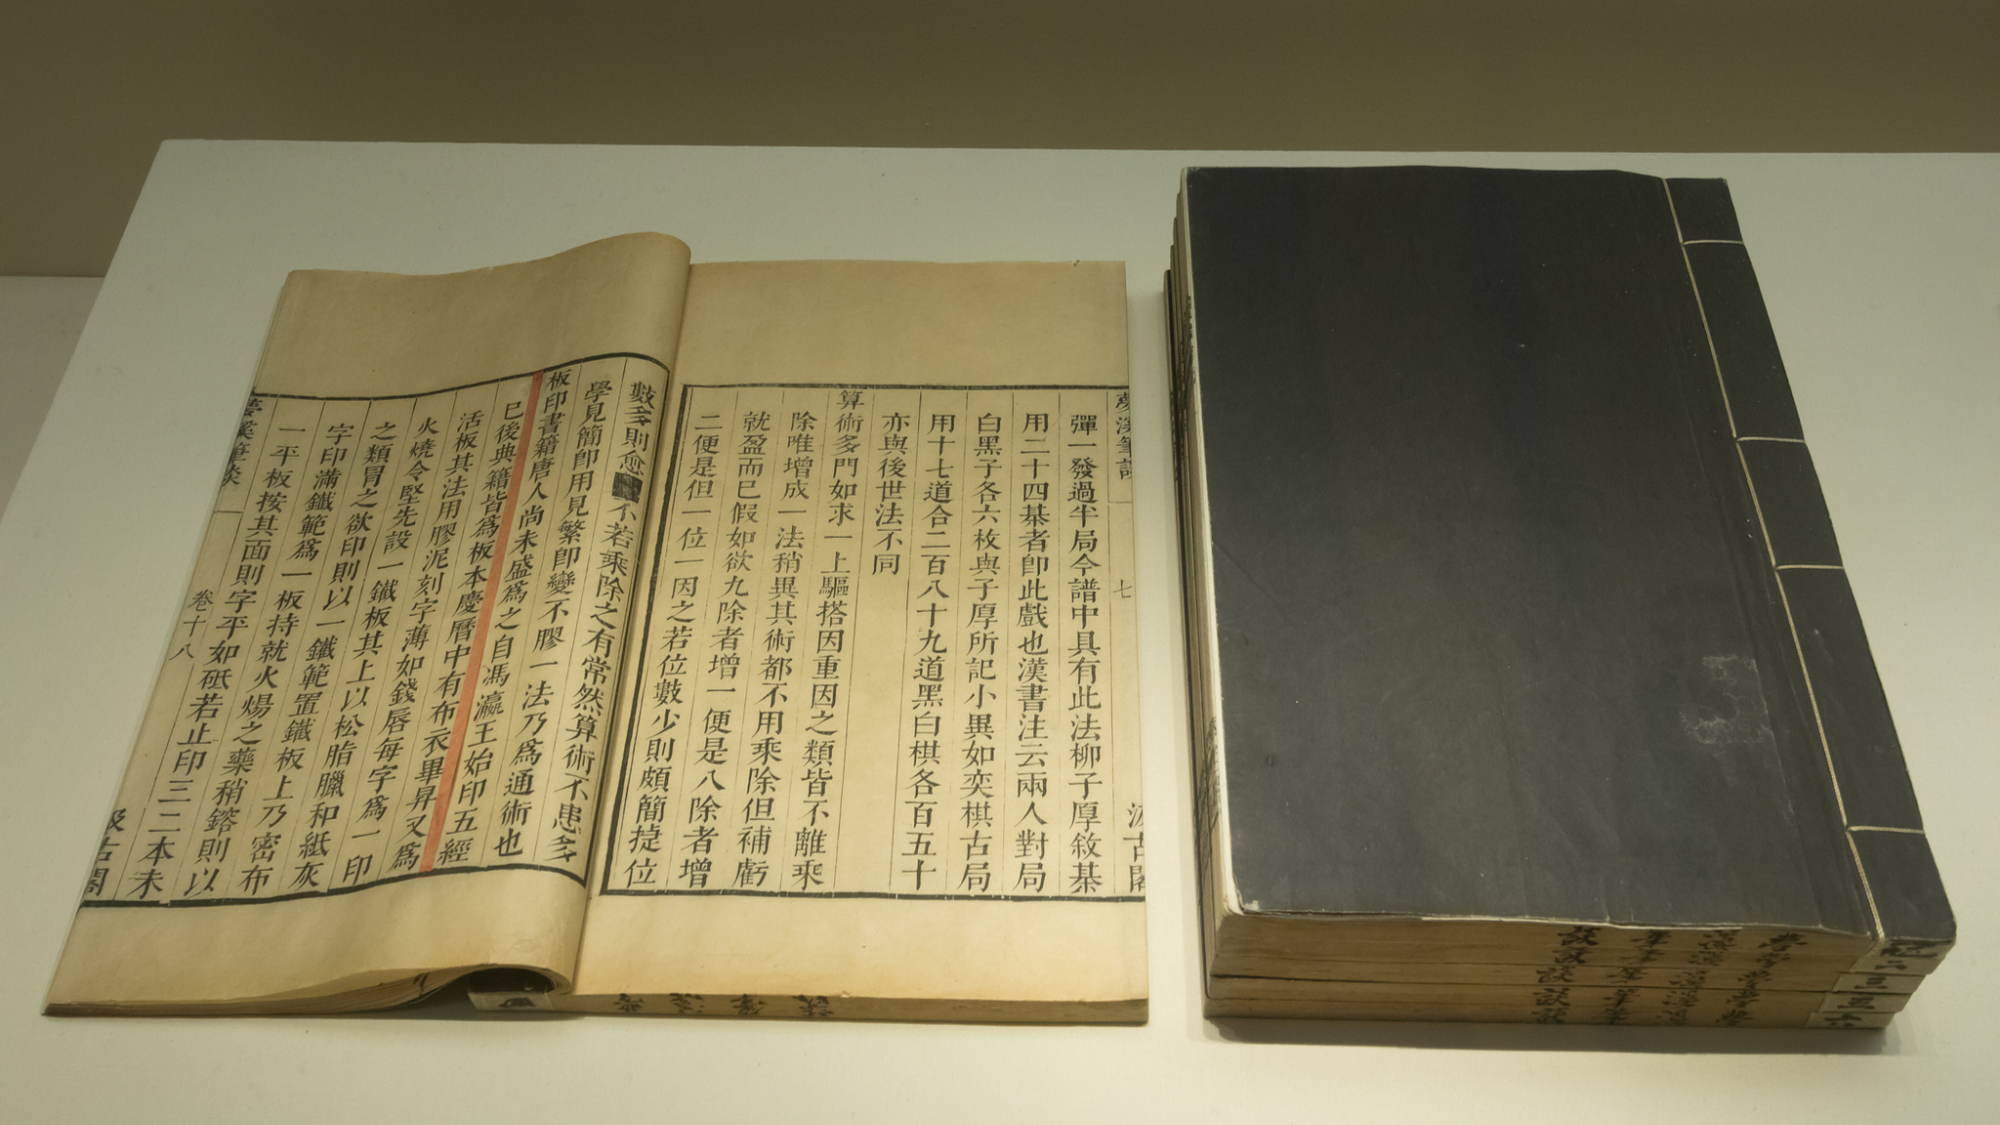 夢溪筆談
七
汲古閣
彈一發過半局今譜中具有此法柳子厚敘棊
用二十四棊者卽此戲也漢書注云兩人對局
白黑子各六枚與子厚所記小異如奕棋古局
用十七道合二百八十九道黑白棋各百五十
亦與後世法不同
算術多門如求一上驅搭因重因之類皆不離乘
除唯增成一法稍異其術都不用乘除但補虧
就盈而已假如欲九除者增一便是八除者增
二便是但一位一因之若位數少則頗簡捷位
數多則愈不若乘除之有常然算術不患多
學見簡卽用見繁卽變不膠一法乃爲通術也
板印書籍唐人尚未盛爲之自馮瀛王始印五經
已後典籍皆爲板本慶曆中有布衣畢昇又爲
活板其法用膠泥刻字薄如錢唇每字爲一印
火燒令堅先設一鐵板其上以松脂臘和紙灰
之類冒之欲印則以一鐵範置鐵板上乃密布
字印滿鐵範爲一板持就火煬之藥稍鎔則以
一平板按其面則字平如砥若止印三二本未
夢溪筆談
卷十八
汲古閣